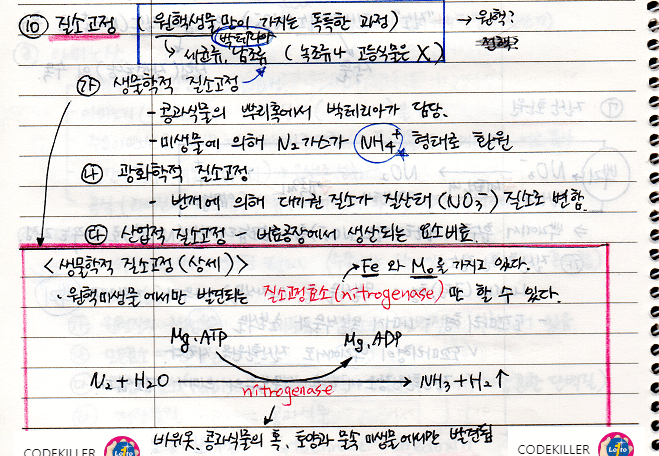 ⑯ 질소고정 ( 원핵생물 만이 가지는 독특한 과정) → 원핵?
박테리아
↳ 세균류, 남조류 ( 녹조류나 고등식물은 X )
㉮ 생물학적 질소고정
- 콩과식물의 뿌리혹에서 박테리아가 담당.
- 미생물에 의해 N₂가스가 NH₄⁺ 형태로 환원
㉯ 광화학적 질소고정
- 번개에 의해 대기권 질소가 질산태 (NO₃⁻) 질소로 변함.
㉰ 산업적 질소고정 는 비료공장에서 생산되는 요소비료
<생물학적 질소고정(상세)> Fe 와 Mo을 가지고 있다.
· 원핵미생물에서만 발견되는 질소고정효소(nitrogenase)만 할 수 있다.
Mg.ATP Mg.ADP
N₂ + H₂O → NH₃ + H₂↑
nitrogenase
바위옷, 콩과식물의 혹, 토양과 물속 미생물에서만 발견됨
CODEKILLER Lotto CODEKILLER Lotto